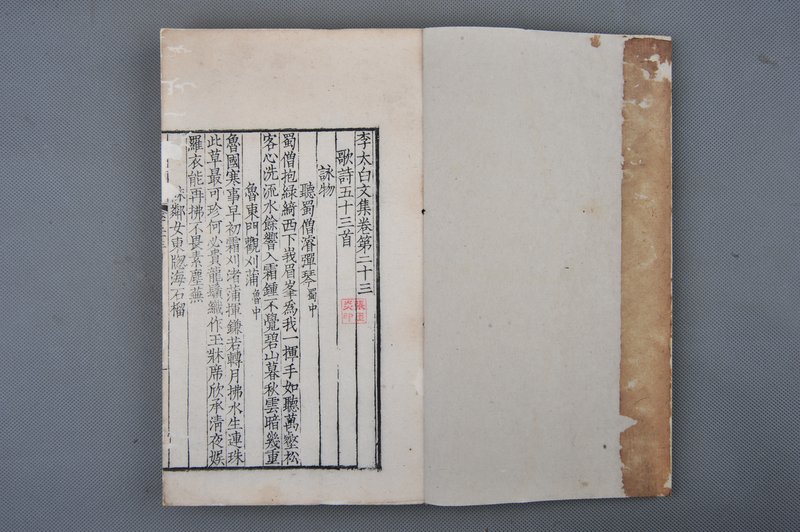 李太白文集卷第二十三
歌詩五十三首
詠物
聽蜀僧濬彈琴 蜀中
蜀僧抱緑綺西下峩眉峯為我一揮手如聽萬壑松
客心洗流水餘響入霜鍾不覺碧山暮秋雲暗幾重
魯東門觀刈蒲 魯中
魯國寒事早初霜刈渚蒲揮鎌若轉月拂水生連珠
此草最可珍何必貴龍鬚織作玉牀席欣承清夜娱
羅衣能再拂不畏素塵蕪
鄰女東牕海石榴